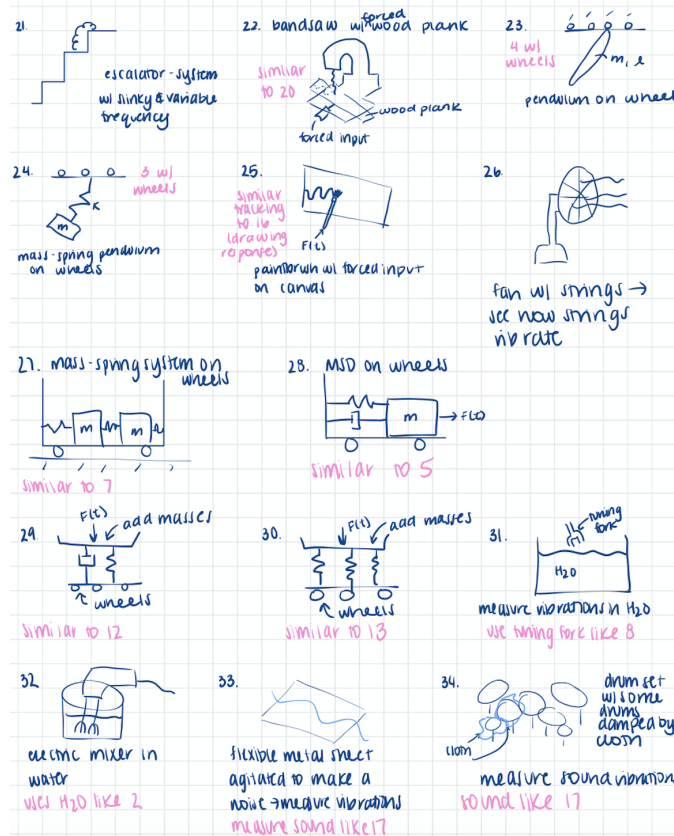 21.
escalator-system
w/ slinky & variable
frequency
22. bandsaw w/ forced wood plank
similar
to 20
wood plank
forced input
23.
4 w/
wheels
m, l
pendulum on wheel
24.
3 w/
wheels
k
m
mass-spring pendulum
on wheels
25.
similar
tracking
to 16
(drawing
response)
F(t)
w/ forced input
on canvas
26.
fan w/ strings →
see how strings
vibrate
27. mass-spring system on
wheels
m
m
similar to 7
28. MSD on wheels
m
F(t)
similar to 5
29.
F(t)
add masses
wheels
similar to 12
30.
F(t)
add masses
wheels
similar to 13
31.
tuning
fork
H2O
measure vibrations in H2O
use tuning fork like 8
32
electric mixer in
water
uses H2O like 2
33.
flexible metal sheet
agitated to make a
noise → measure vibrations
measure sound like 17
34.
drum set
w/ some
drums
damped by
cloth
cloth
measure sound vibration
sound like 17